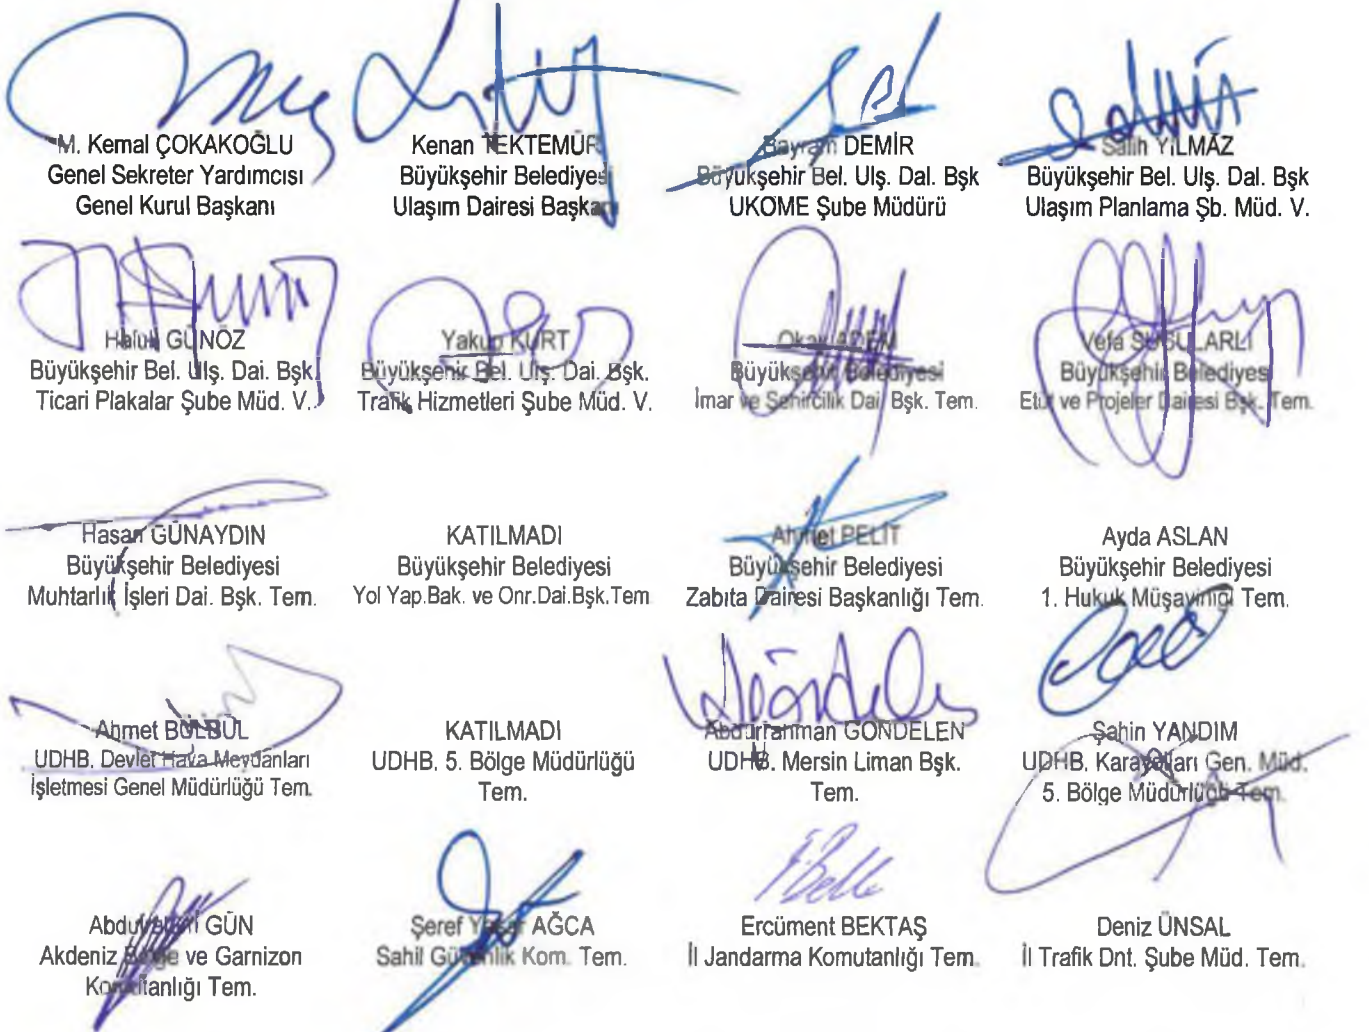 M. Kemal ÇOKAKOĞLU
Genel Sekreter Yardımcısı
Genel Kurul Başkanı
Kenan TEKTEMÜR
Büyükşehir Belediyesi
Ulaşım Dairesi Başkanı
Bayram DEMİR
Büyükşehir Bel. Ulş. Dal. Bşk
UKOME Şube Müdürü
Salih YILMAZ
Büyükşehir Bel. Ulş. Dal. Bşk
Ulaşım Planlama Şb. Müd. V.
Haluk GÜNÖZ
Büyükşehir Bel. Ulş. Dai. Bşk.
Ticari Plakalar Şube Müd. V.
Yakup KURT
Büyükşehir Bel. Ulş. Dai. Bşk.
Trafik Hizmetleri Şube Müd. V.
Okay ADEM
Büyükşehir Belediyesi
İmar ve Şehircilik Dai. Bşk. Tem.
Vefa
Büyükşehir Belediyesi
Etüt ve Projeler Dairesi Bşk. Tem.
Hasan GÜNAYDIN
Büyükşehir Belediyesi
Muhtarlık İşleri Dai. Bşk. Tem.
KATILMADI
Büyükşehir Belediyesi
Yol Yap.Bak. ve Onr.Dai.Bşk.Tem
Ahmet PELİT
Büyükşehir Belediyesi
Zabıta Dairesi Başkanlığı Tem.
Ayda ASLAN
Büyükşehir Belediyesi
1. Hukuk Müşavirliği Tem.
Ahmet BÜLBÜL
UDHB. Devlet Hava Meydanları
İşletmesi Genel Müdürlüğü Tem.
KATILMADI
UDHB. 5. Bölge Müdürlüğü
Tem.
Abdurrahman GÖNDELEN
UDHB. Mersin Liman Bşk.
Tem.
Şahin YANDIM
UDHB. Karayolları Gen. Müd.
5. Bölge Müdürlüğü Tem.
GÜN
Akdeniz Bölge ve Garnizon
Komutanlığı Tem.
Şeref Yaşar AĞCA
Sahil Güvenlik Kom. Tem.
Ercüment BEKTAŞ
İl Jandarma Komutanlığı Tem.
Deniz ÜNSAL
İl Trafik Dnt. Şube Müd. Tem.